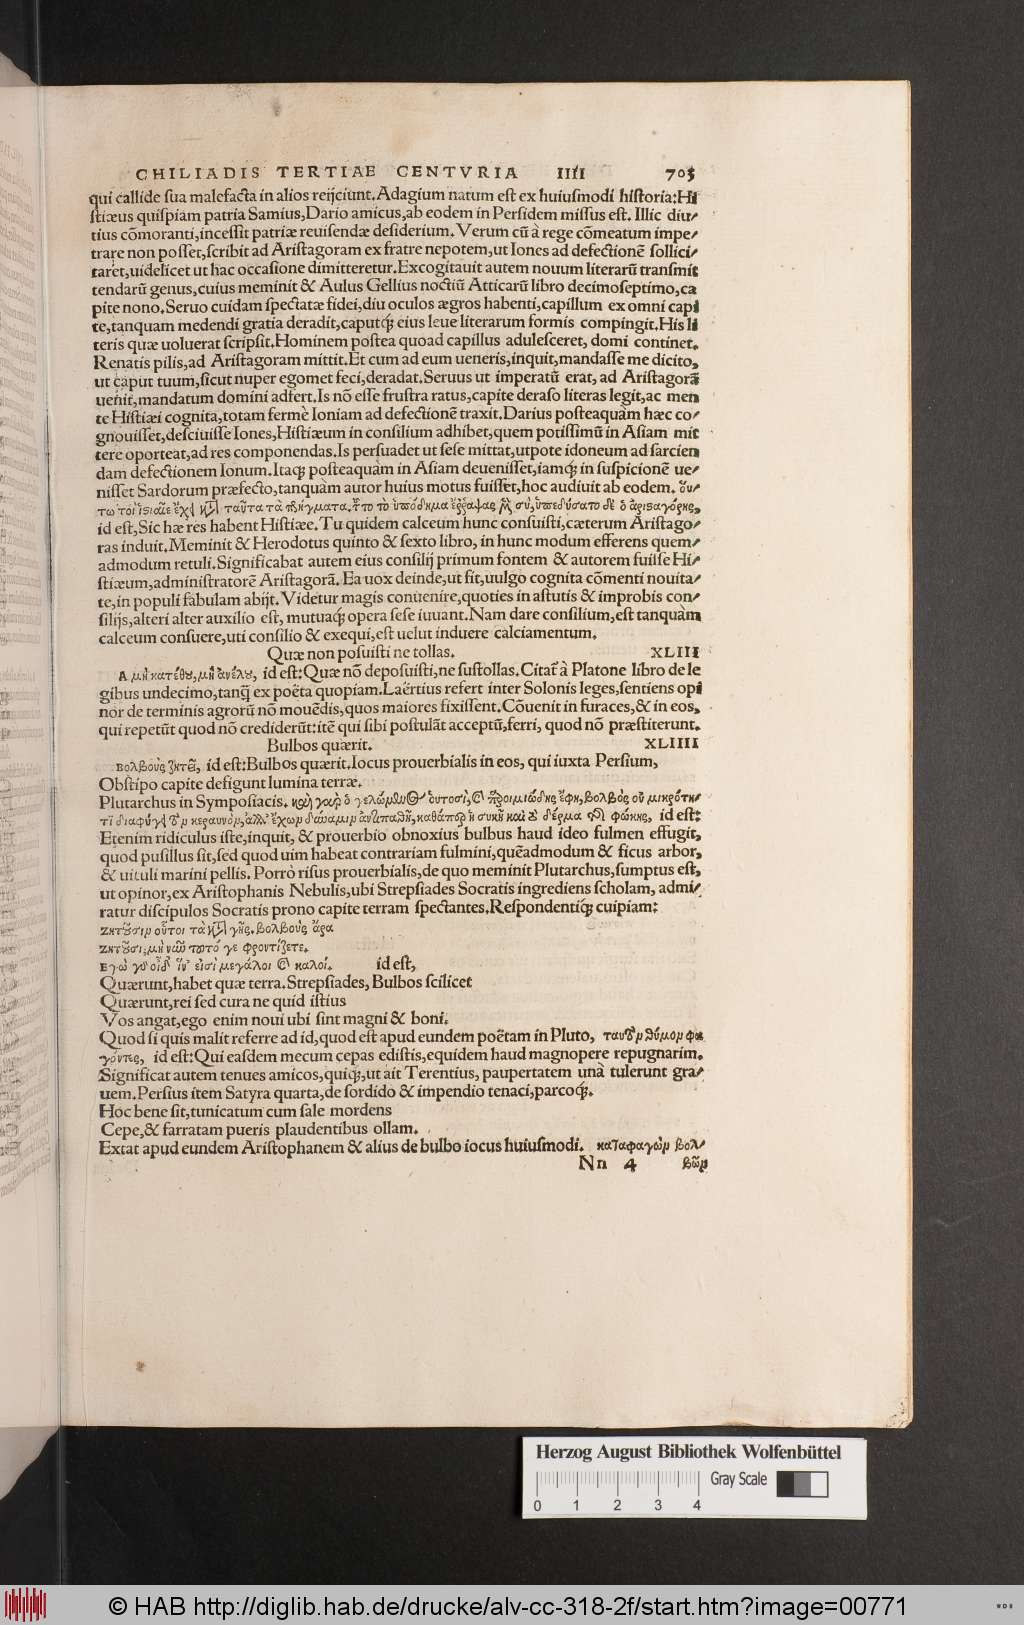 CHILIADIS TERTIAE CENTVRIA IIII 705
qui callide sua malefacta in alios reijciunt. Adagium natum est ex huiusmodi historia: Hi
stiæus quispiam patria Samius, Dario amicus, ab eodem in Persidem missus est. Illic diu/
tius cōmoranti, incessit patriæ reuisendæ desiderium. Verum cū à rege cōmeatum impe/
trare non posset, scribit ad Aristagoram ex fratre nepotem, ut Iones ad defectionē sollici/
taret, uidelicet ut hac occasione dimitteretur. Excogitauit autem nouum literarū transmit
tendarū genus, cuius meminit & Aulus Gellius noctiū Atticarū libro decimoseptimo, ca
pite nono. Seruo cuidam spectatæ fidei, diu oculos ægros habenti, capillum ex omni capi
te, tanquam medendi gratia deradit, caputq́; eius leue literarum formis compingit. His li
teris quæ uoluerat scripsit. Hominem postea quoad capillus adulesceret, domi continet.
Renatis pilis, ad Aristagoram mittit. Et cum ad eum ueneris, inquit, mandasse me dicito,
ut caput tuum, sicut nuper egomet feci, deradat. Seruus ut imperatū erat, ad Aristagorā
uenit, mandatum domini adfert. Is nō esse frustra ratus, capite deraso literas legit, ac men
te Histiæi cognita, totam fermè Ioniam ad defectionē traxit. Darius posteaquàm hæc co/
gnouisset, desciuisse Iones, Histiæum in consilium adhibet, quem potissimū in Asiam mit
tere oporteat, ad res componendas. Is persuadet ut sese mittat, utpote idoneum ad sarcien
dam defectionem Ionum. Itaq; posteaquàm in Asiam deuenisset, iamq́; in suspicionē ue/
nisset Sardorum præfecto, tanquàm autor huius motus fuisset, hoc audiuit ab eodem. οὕ/
τω τοι ἱστιαῖε ἔχει κατὰ ταῦτα τὰ πρήγματα, τοῦτο τὸ ὑπόδημα ἔρραψας μὲν σύ, ὑπεδύσατο δὲ ὁ ἀρισταγόρης,
id est, Sic hæ res habent Histiæe. Tu quidem calceum hunc consuisti, cæterum Aristago/
ras induit. Meminit & Herodotus quinto & sexto libro, in hunc modum efferens quem/
admodum retuli. Significabat autem eius consilij primum fontem & autorem fuisse Hi/
stiæum, administratorē Aristagorā. Ea uox deinde, ut fit, uulgo cognita cōmenti nouita/
te, in populi fabulam abijt. Videtur magis conuenire, quoties in astutis & improbis con/
silijs, alteri alter auxilio est, mutuaq́; opera sese iuuant. Nam dare consilium, est tanquàm
calceum consuere, uti consilio & exequi, est uelut induere calciamentum.
Quæ non posuisti ne tollas. XLIII
Α μὴ κατέθου, μὴ ἀνέλου, id est: Quæ nō deposuisti, ne sustollas. Citat̃ à Platone libro de le
gibus undecimo, tanq̃ ex poëta quopiam. Laërtius refert inter Solonis leges, sentiens opi
nor de terminis agrorū nō mouēdis, quos maiores fixissent. Cōuenit in furaces, & in eos,
qui repetūt quod nō crediderūt: itē qui sibi postulāt acceptū, ferri, quod nō præstiterunt.
Bulbos quærit. XLIIII
Βολβοὺς ζητεῖ, id est: Bulbos quærit. Iocus prouerbialis in eos, qui iuxta Persium,
Obstipo capite defigunt lumina terræ.
Plutarchus in Symposiacis. καὶ γὰρ ὁ γελώμενος οὑτοσί, καὶ παροιμιώδης ἔφη, βολβὸς οὐ μικρότη/
τι διαφεύγει τὸν κεραυνὸν, ἀλλ' ἔχων δύναμιν ἀντιπαθῆ, καθάπερ ἡ συκῆ καὶ τὸ δέρμα τῆς φώκης, id est:
Etenim ridiculus iste, inquit, & prouerbio obnoxius bulbus haud ideo fulmen effugit,
quod pusillus sit, sed quod uim habeat contrariam fulmini, quēadmodum & ficus arbor,
& uituli marini pellis. Porrò risus prouerbialis, de quo meminit Plutarchus, sumptus est,
ut opinor, ex Aristophanis Nebulis, ubi Strepsiades Socratis ingrediens scholam, admi/
ratur discipulos Socratis prono capite terram spectantes. Respondentiq́; cuipiam:
Ζητοῦσιν οὗτοι τὰ κατὰ γῆς. βολβοὺς ἄρα
Ζητοῦσι; μὴ νῦν τοῦτό γε φροντίζετε.
Εγὼ γὰρ οἶδ' ἵν' εἰσὶ μεγάλοι καὶ καλοί. id est,
Quærunt, habet quæ terra. Strepsiades, Bulbos scilicet
Quærunt, rei sed cura ne quid istius
Vos angat, ego enim noui ubi sint magni & boni.
Quod si quis malit referre ad id, quod est apud eundem poëtam in Pluto, ταυτὸν θύμον φα
γόντες, id est: Qui easdem mecum cepas edistis, equidem haud magnopere repugnarim.
Significat autem tenues amicos, quiq́;, ut ait Terentius, paupertatem unà tulerunt gra/
uem. Persius item Satyra quarta, de sordido & impendio tenaci, parcoq́;.
Hoc bene sit, tunicatum cum sale mordens
Cepe, & farratam pueris plaudentibus ollam.
Extat apud eundem Aristophanem & alius de bulbo iocus huiusmodi. καταφαγὼν βολ/
Nn 4 βῶν
Herzog August Bibliothek Wolfenbüttel
Gray Scale
0 1 2 3 4
© HAB http://diglib.hab.de/drucke/alv-cc-318-2f/start.htm?image=00771